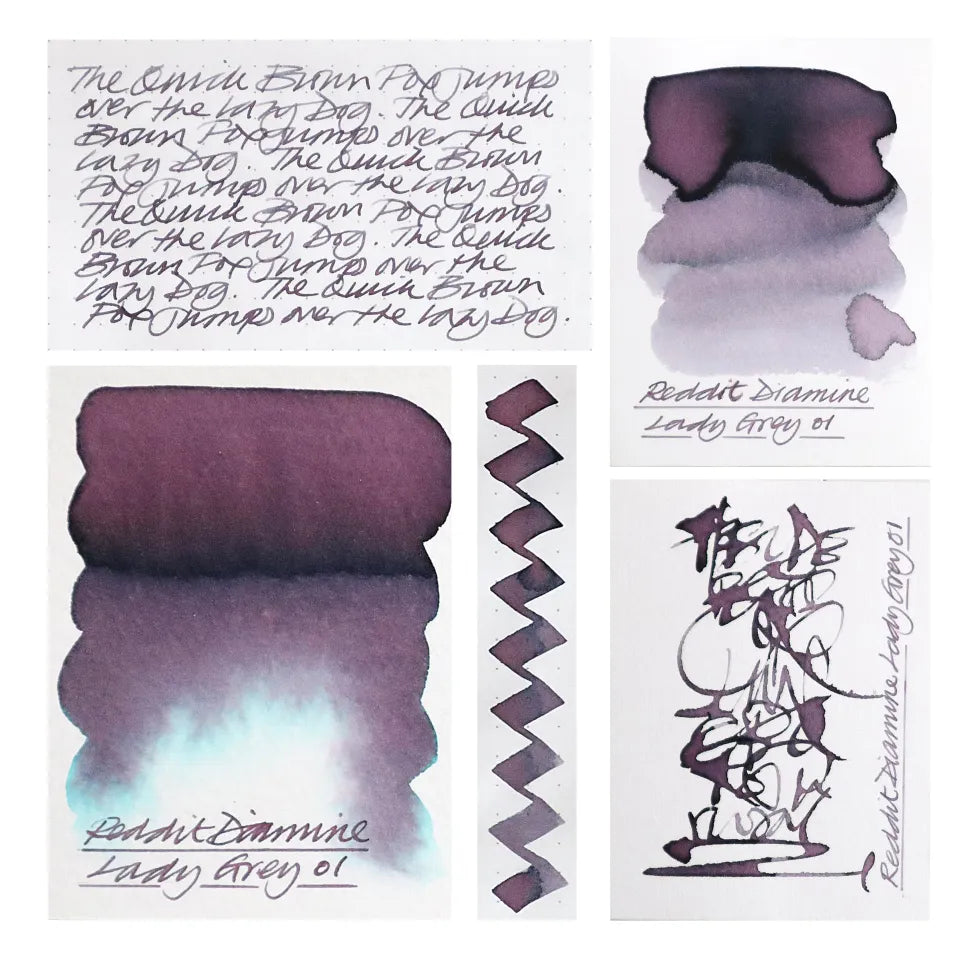 The Quick Brown Fox Jumps
over the Lazy Dog. The Quick
Brown Fox Jumps over the
Lazy Dog. The Quick Brown
Fox Jumps over the Lazy Dog.
The Quick Brown Fox Jumps
over the Lazy Dog. The Quick
Brown Fox Jumps over the
Lazy Dog. The Quick Brown
Fox Jumps over the Lazy Dog.
Reddit Diamine
Lady Grey 01
Reddit Diamine
Lady Grey 01
Reddit Diamine Lady Grey 01